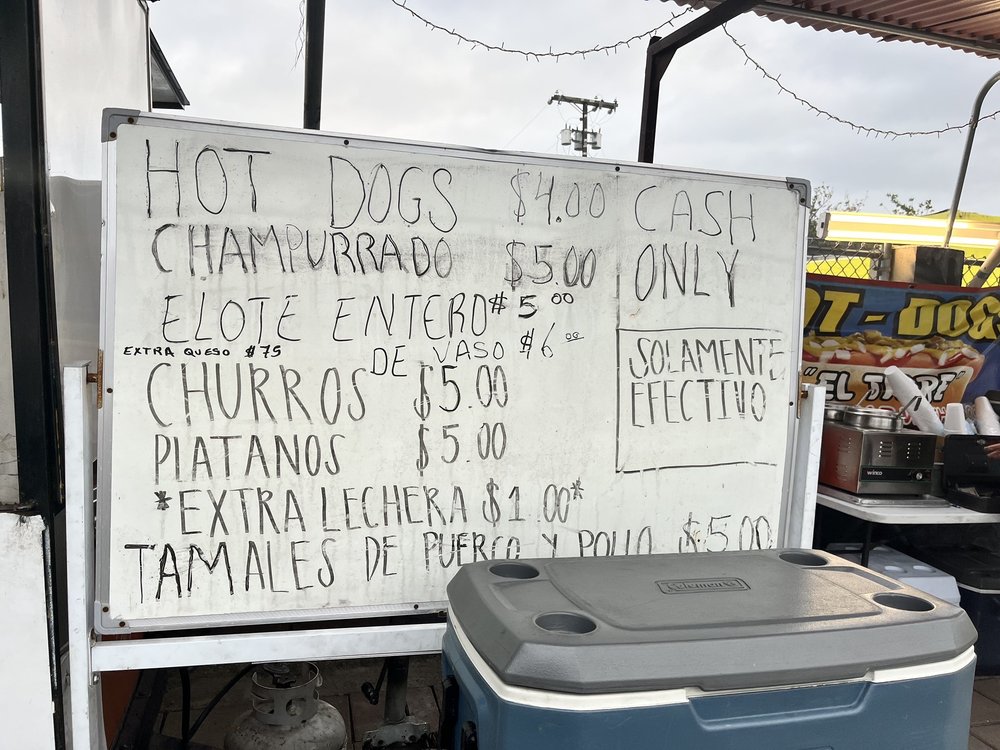 HOT DOGS $4.00
CHAMPURRADO $5.00
ELOTE ENTERO $5.00
EXTRA QUESO $75
DE VASO $6.00
CHURROS $5.00
PLATANOS $5.00
*EXTRA LECHERA $1.00*
TAMALES DE PUERCO Y POLLO $5.00
CASH
ONLY
SOLAMENTE
EFECTIVO
OT-DOG
"EL
winco
Coleman